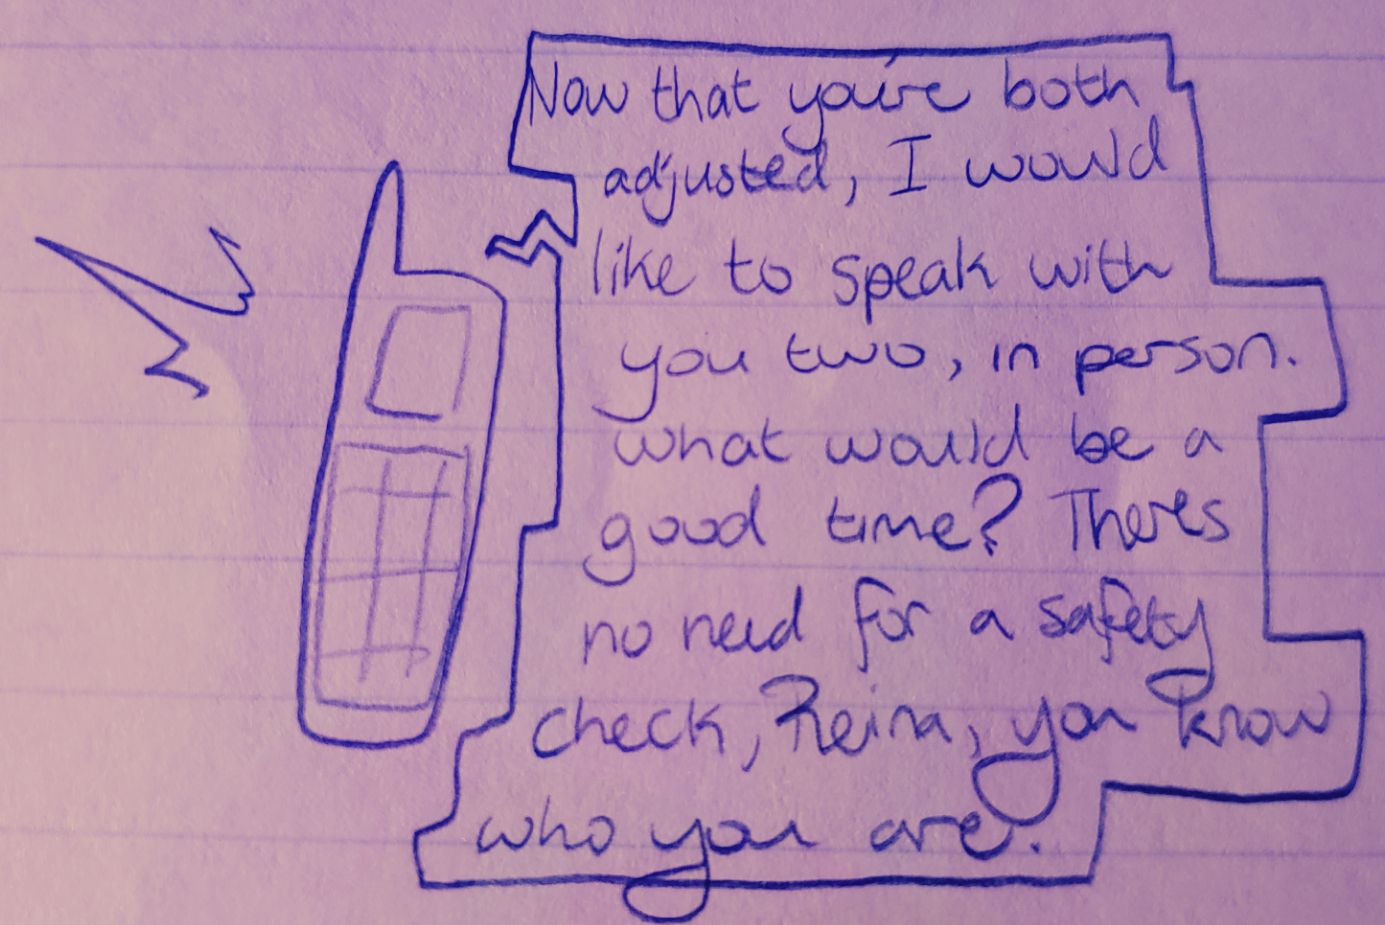 Now that you're both
adjusted, I would
like to speak with
you two, in person.
what would be a
good time? There's
no need for a safety
check, Reina, you know
who you are.